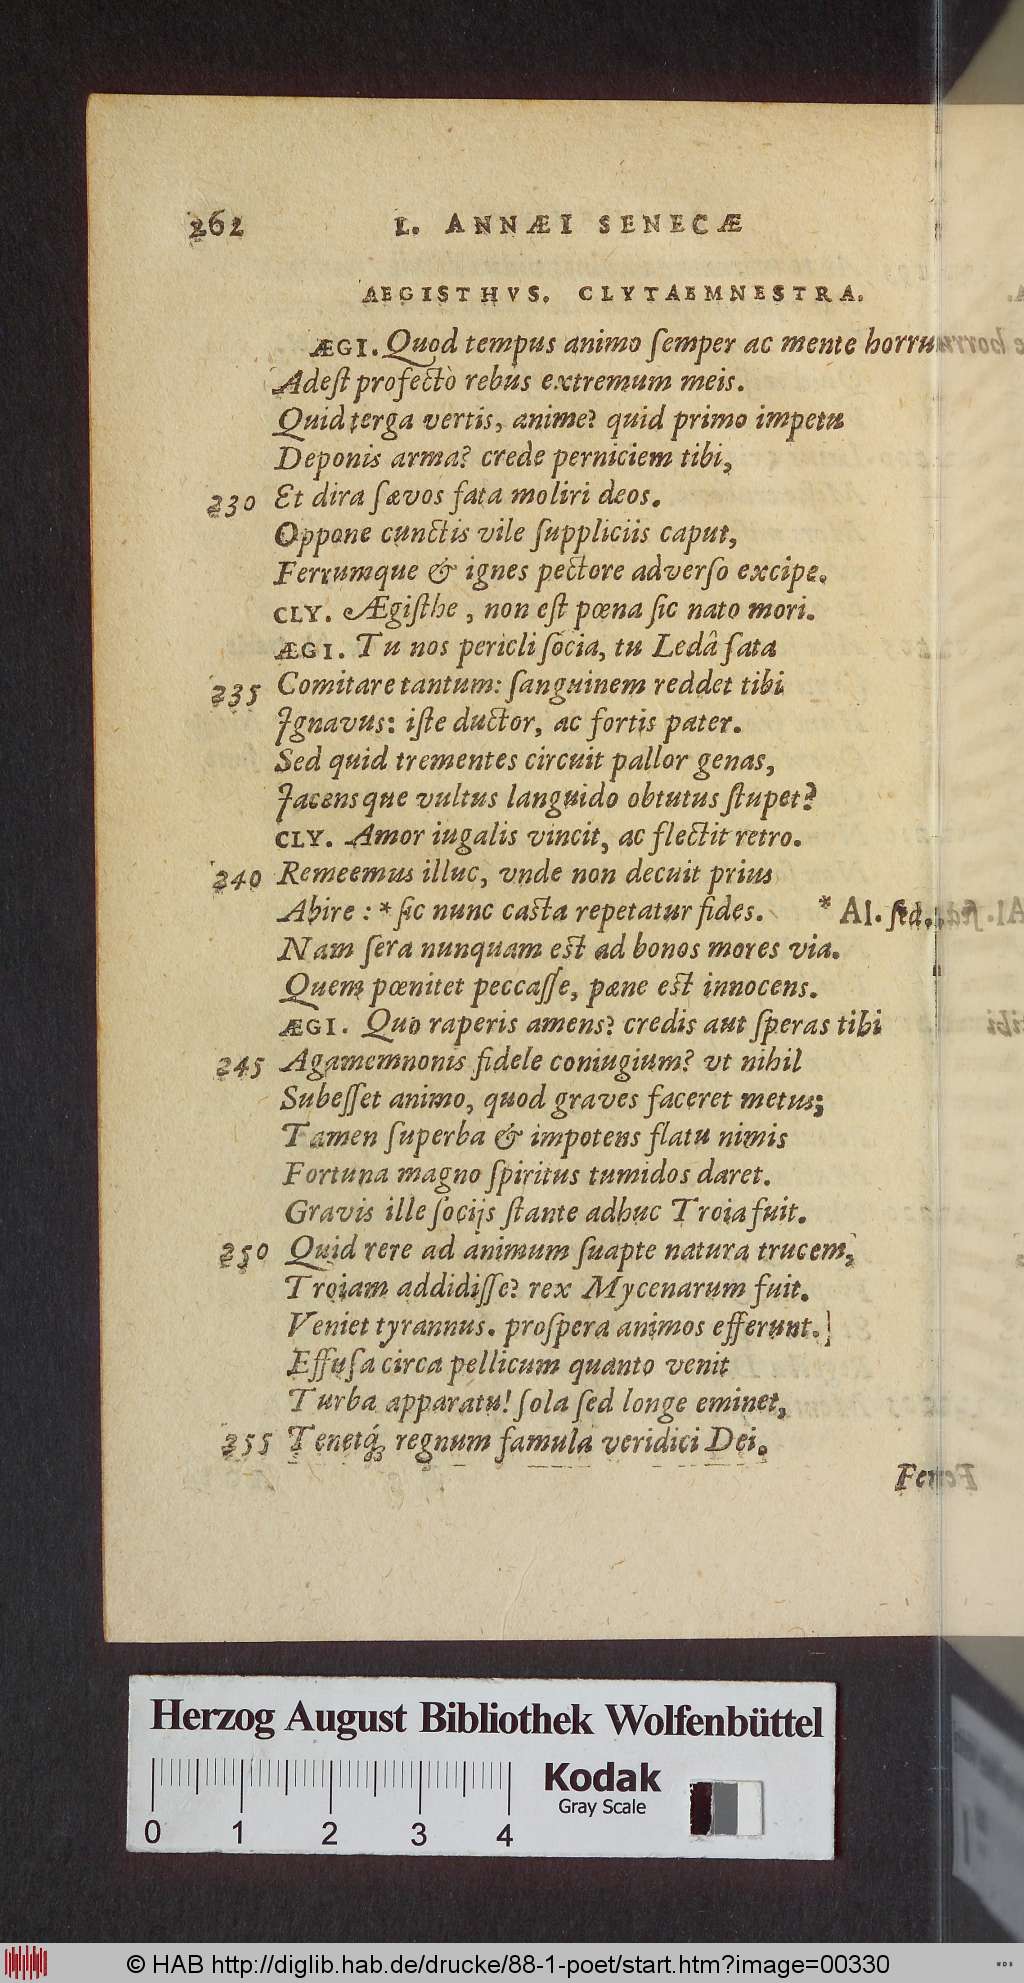 262 L. ANNÆI SENECÆ
AEGISTHVS. CLYTAEMNESTRA.
ÆGI. Quod tempus animo ſemper ac mente horrui
Adeſt profectò rebus extremum meis.
Quid terga vertis, anime? quid primo impetu
Deponis arma? crede perniciem tibi,
230 Et dira ſævos fata moliri deos.
Oppone cunctis vile ſuppliciis caput,
Ferrumque & ignes pectore adverſo excipe.
CLY. Ægiſthe, non eſt pœna ſic nato mori.
ÆGI. Tu nos pericli ſocia, tu Ledâ ſata
235 Comitare tantum: ſanguinem reddet tibi
Ignavus: iſte ductor, ac fortis pater.
Sed quid trementes circuit pallor genas,
Jacensque vultus languido obtutus ſtupet?
CLY. Amor iugalis vincit, ac flectit retro.
240 Remeemus illuc, vnde non decuit prius
Abire: * ſic nunc caſta repetatur fides. * Al. ſed.
Nam ſera nunquam eſt ad bonos mores via.
Quem pœnitet peccaſſe, pæne eſt innocens.
ÆGI. Quo raperis amens? credis aut ſperas tibi
245 Agamemnonis fidele coniugium? vt nihil
Subeſſet animo, quod graves faceret metus;
Tamen ſuperba & impotens flatu nimis
Fortuna magno ſpiritus tumidos daret.
Gravis ille ſociis ſtante adhuc Troia fuit.
250 Quid rere ad animum ſuapte natura trucem,
Troiam addidiſſe? rex Mycenarum fuit.
Veniet tyrannus. proſpera animos efferunt.
Effuſa circa pellicum quanto venit
Turba apparatu! ſola ſed longe eminet,
255 Tenetq́; regnum famula veridici Dei.
Herzog August Bibliothek Wolfenbüttel
Kodak
Gray Scale
0 1 2 3 4
© HAB http://diglib.hab.de/drucke/88-1-poet/start.htm?image=00330